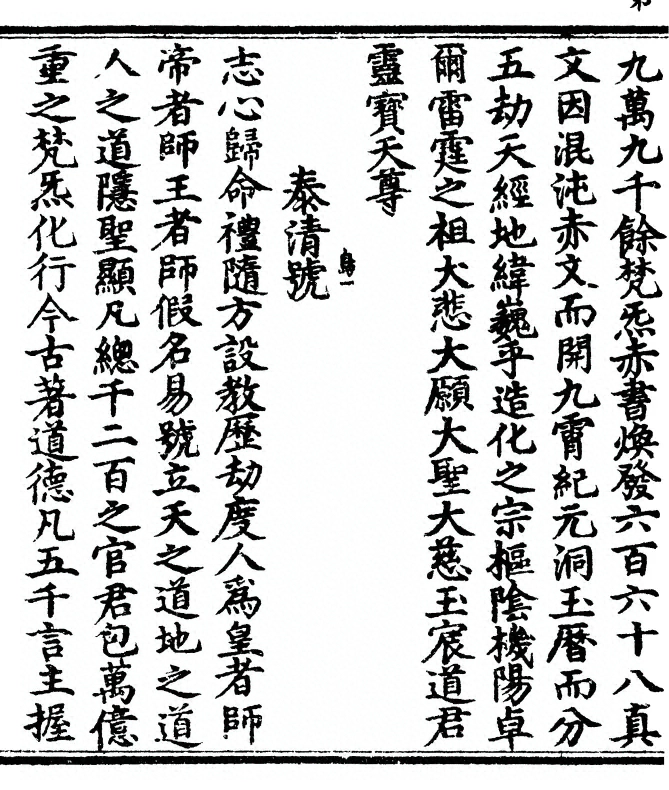 九萬九千餘梵炁赤書煥發六百六十八真
文因混沌赤文而開九霄紀元洞玉曆而分
五劫天經地緯巍乎造化之宗樞陰機陽卓
爾雷霆之祖大悲大願大聖大慈玉宸道君
靈寶天尊
泰清號
志心歸命禮隨方設教歷劫度人爲皇者師
帝者師王者師假名易號立天之道地之道
人之道隱聖顯凡總千二百之官君包萬億
重之梵炁化行今古著道德凡五千言主握